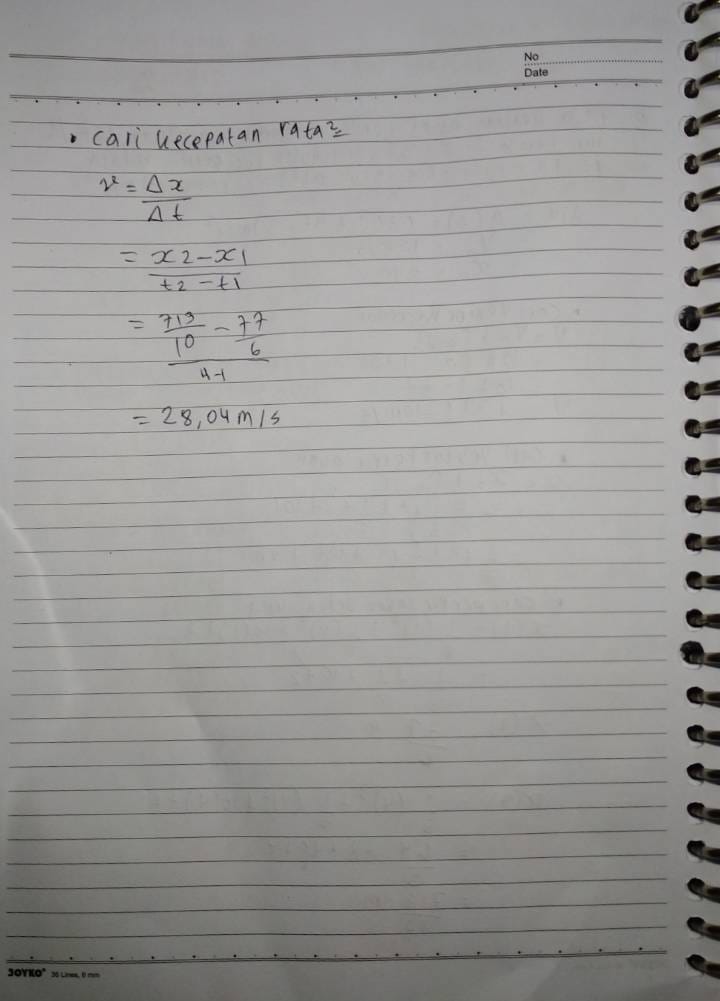 No
Date
• Cari kecepatan rata2
v = Δx
Δt
= x2 - x1
t2 - t1
= 713/10 - 77/6
4-1
= 28,04 m/s
JOYKO 36 Lines, 8 mm